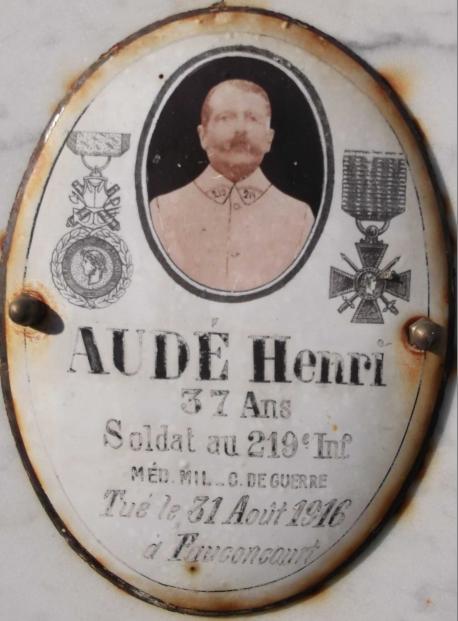 AUDÉ Henri
37 Ans
Soldat au 219e Inf
MÉD. MIL._C. DE GUERRE
Tué le 31 Août 1916
à Fauconcourt